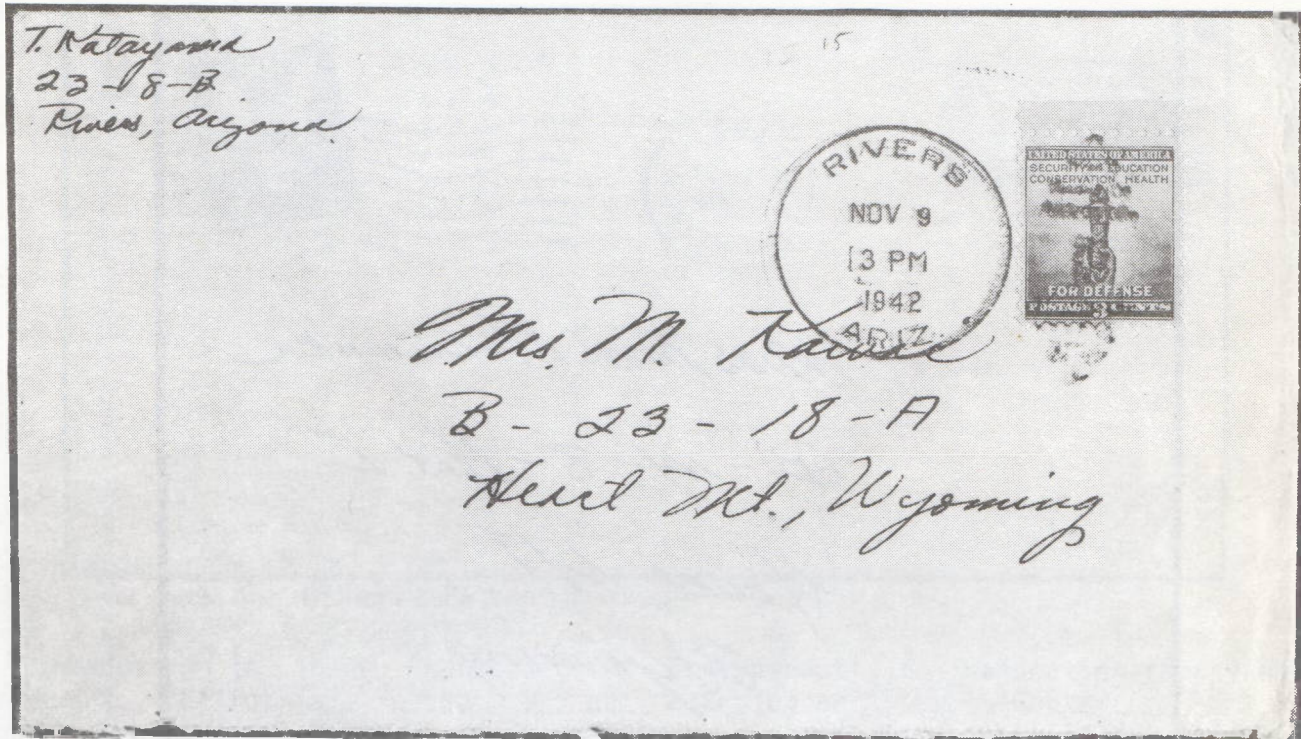 T. Katayama
23-18-B
Rivers, Arizona
15
RIVERS
NOV 9
3 PM
1942
ARIZ.
UNITED STATES OF AMERICA
SECURITY EDUCATION
CONSERVATION HEALTH
FOR DEFENSE
POSTAGE 3 CENTS
Mrs. M.
B - 23 - 18 - A
Heart Mt., Wyoming